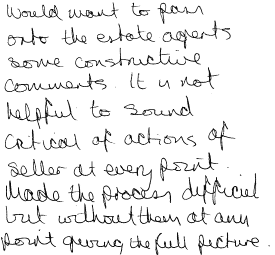 Would want to pass
onto the estate agents
some constructive
comments. It is not
helpful to sound
critical of actions of
seller at every point.
Made the process difficult
but without them at any
point giving the full picture.